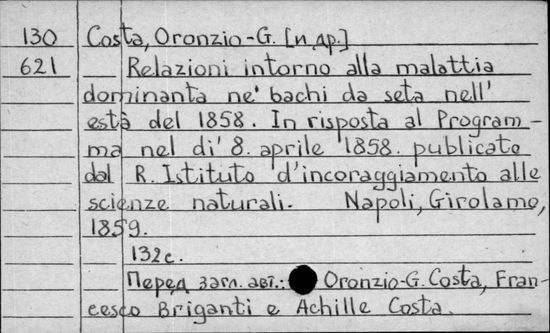 130 Costa, Oronzio-G. [и др.]
621 Relazioni intorno alla malattia
dominanta ne' bachi da seta nell'
està del 1858. In risposta al Program-
ma nel di' 8. aprile 1858. publicato
dal R. Istituto d'incoraggiamento alle
scienze naturali. Napoli, Girolamo,
1859.
132c.
Перед загл. авт.: Oronzio-G. Costa, Fran-
cesco Briganti e Achille Costa.